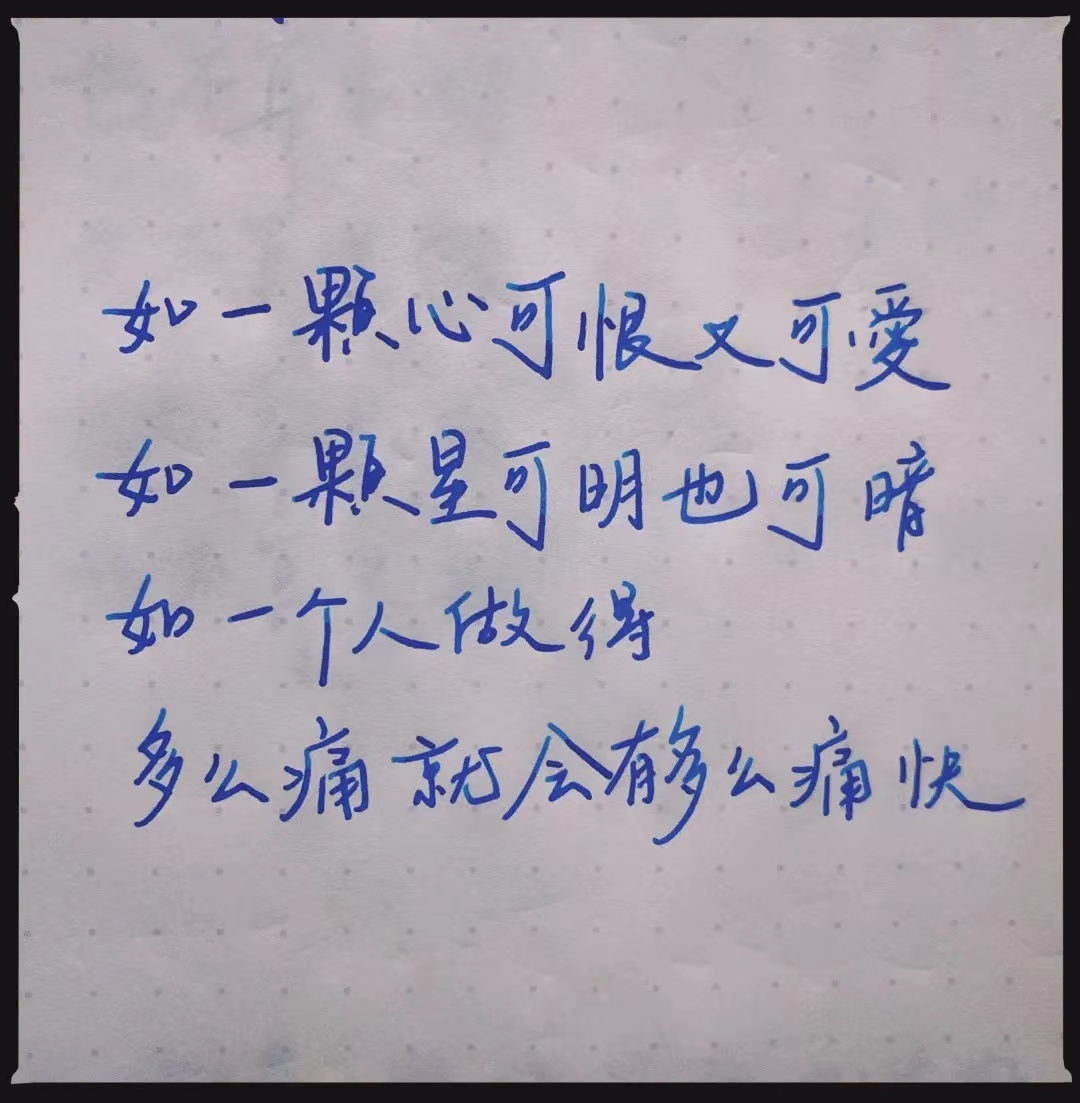 如一顆心可恨又可愛
如一顆星可明也可暗
如一个人做得
多么痛就会有多么痛快